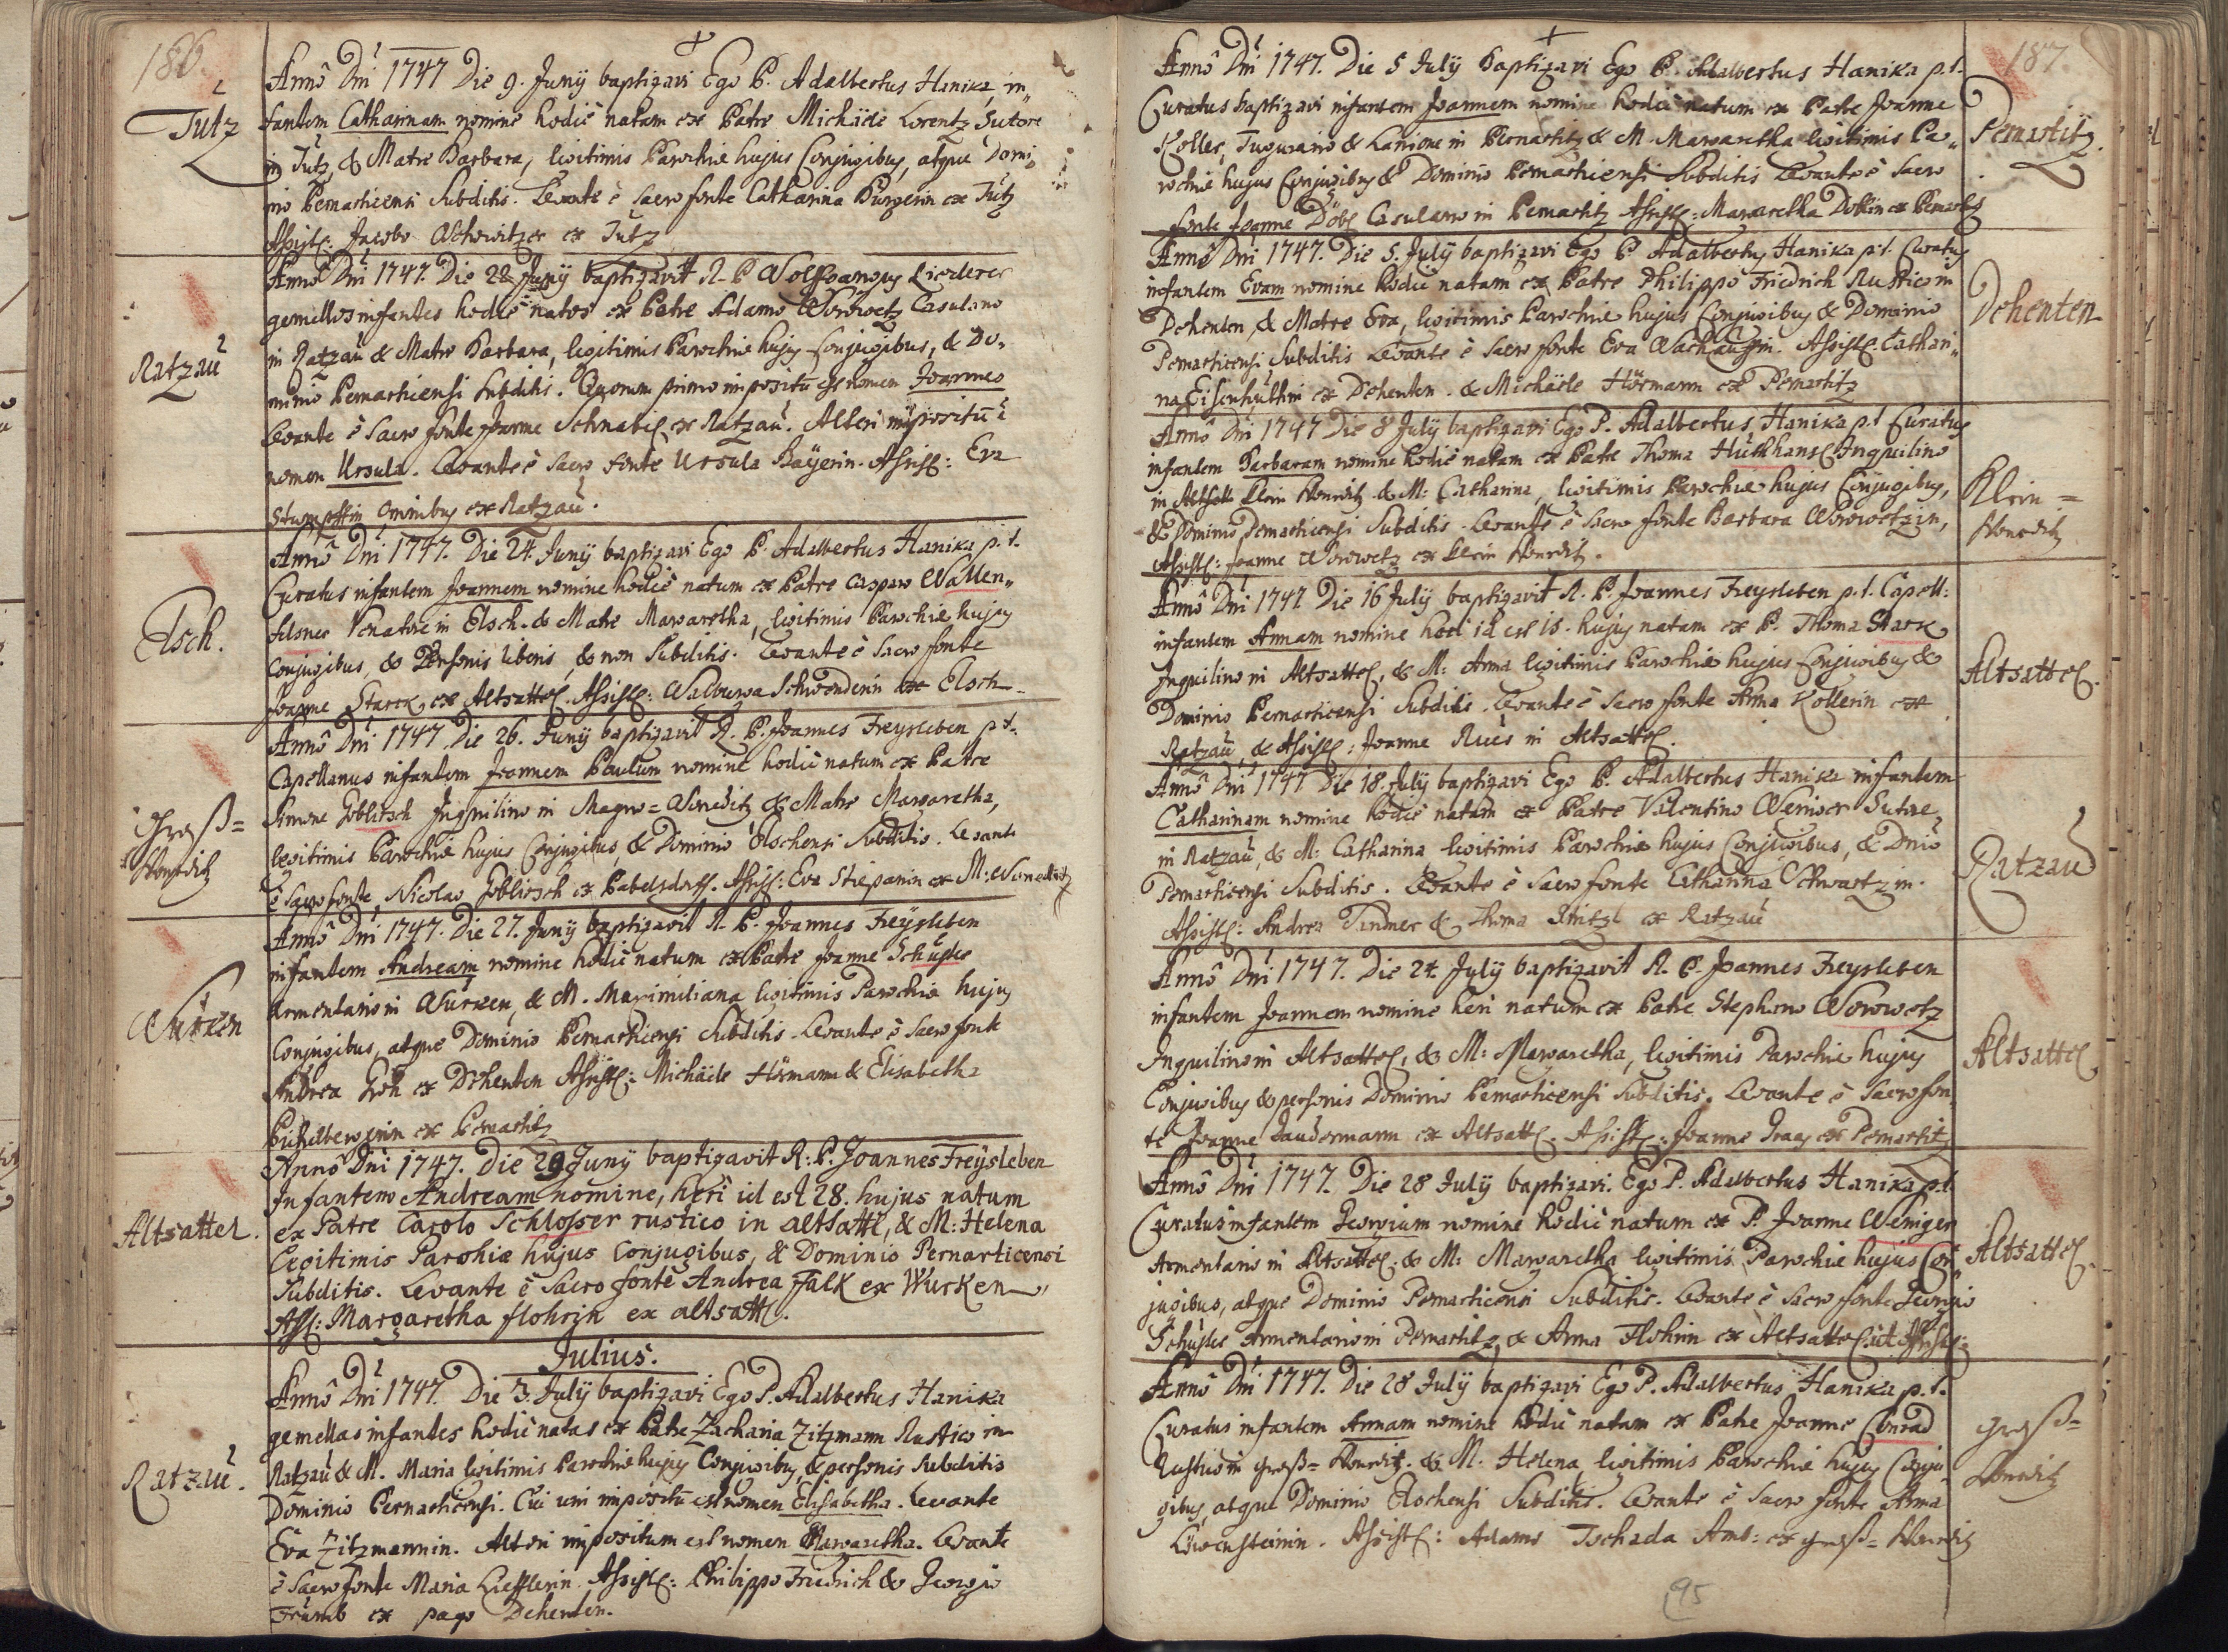 186
Tutz
Anno Dni 1747 Die 9. Junij baptizavi Ego P. Adalbertus Hanika, in„
fantem Catharinam nomine hodie natam ex Patre Michäele Lorentz Sutore
in Tutz, & Matre Barbara, legitimis Parochiæ hujus Conjugibus, atque Domi„
nio Pernarticensi Subditis. Levante è sacro fonte Catharina Burgerin ex Tutz
Assist: Jacobo ex Tutz
Ratzau
Anno Dni 1747. Die 22 Junij baptizavit R. P. Wolffgangus Liederer
gemellos infantes hodie natos ex Patre Adamo Worowetz Casulario
in Ratzau & Matre Barbara, legitimis Parochiæ hujus Conjugibus, & Do„
minio Pernarticensi subditis. Quorum primo impositū est nomen Joannes
Levante è sacro fonte Joanne Schnabl ex Ratzau. Alteri impositū ē
nomen Ursula. Levante è sacro fonte Ursula Bayerin. Assist: Eva
Stumpffin omnibus ex Ratzau.
Elsch.
Anno Dni 1747. Die 24. Junij baptizavi Ego P. Adalbertus Hanika p. t.
Curatus infantem Joannem nomine hodie natum ex Patre Casparo Wallen„
felsner Venatore in Elsch. & Matre Margaretha, legitimis Parochiæ hujus
conjugibus, & Personis liberis, & non Subditis. Levante è sacro fonte
Joanne Starck ex Altsattel. Assist: Walburga Schwenderin ex Elsch.
Groß=
Wonetitz
Anno Dni 1747. Die 26. Junij baptizavit R. P. Joannes Freysleben p. t.
Capellanus infantem Joannem Paulum nomine hodie natum ex Patre
Simone Goblitsch Inquilino in Magno=Wonetitz & Matre Margaretha,
legitimis Parochiæ hujus Conjugibus, & Dominio Elschensi Subditis. Levante
è sacro fonte Nicolao Goblitsch ex Pabelsdorff. Assist: Eva Stiepanin ex M: Wonetitz
Wurken
Anno Dni 1747. Die 27. Junij baptizavit R. P. Joannes Freysleben
infantem Andream nomine hodie natum ex Patre Joanne Schuster
Armentario in Wurken, & M. Maximiliana legitimis Parochiæ hujus
Conjugibus, atque Dominio Pernarticensi Subditis. Levante è sacro fonte
Andrea Groh ex Dehenten Assist: Michäele Hörmann & Elisabetha
ex Pernartitz
Altsattel.
Anno Dni 1747. Die 29 Junij baptizavit R: P. Joannes Freysleben
Infantem Andream nomine, heri id est 28. hujus natum
ex Patre Carolo Schlosser rustico in altsattl, & M: Helena
Legitimis Parohiæ hujus Conjugibus, & Dominio Pernarticensi
Subditis. Levante è Sacro fonte Andrea Falk ex Wurken
Ass: Margaretha flohrin ex altsattl.
Julius.
Ratzau.
Anno Dni 1747. Die 3. Julij baptizavi Ego P. Adalbertus Hanika
gemellas infantes hodie natas ex Patre Zacharia Zitzmann Rustico in
Ratzau & M. Maria legitimis Parochiæ hujus Conjugibus, & personis Subditis
Dominio Pernarticensi. Cui uni impositū est nomen Elisabetha. Levante
Eva Zitzmannin. Alteri impositum est nomen Margaretha. Levante
è sacro fonte Maria Liefflerin. Assist: Philippo Friedrich & Georgio
Trumb ex pago Dehenten.
187
Pernartitz.
Anno Dni 1747. Die 5 Julij Baptizavi Ego P. Adalbertus Hanika p. t.
Curatus baptizavi infantem Joannem nomine hodie natum ex Patre Joanne
Koller, Tugurario & Lanione in Pernartitz & M. Margaretha legitimis Pa„
rochiæ hujus Conjugibus & Dominio Pernarticensi Subditis Levante è sacro
fonte Joanne Döbl Casulario in Pernartitz Assist: Margaretha Doblin ex Pernartitz
Dehenten
Anno Dni 1747. Die 5. Julij baptizavi Ego P Adalbertus Hanika p. t. Curatus
infantem Evam nomine hodie natam ex Patre Philippo Friedrich Rustico in
Dehenten, & Matre Eva, legitimis Parochiæ hujus Conjugibus & Dominio
Pernarticensi Subditis Levante è sacro fonte Eva. Assist: Cathari„
na Eisenhuthin ex Dehenten. & Michäele Hörmann ex Pernartitz
Klein=
Wonetitz
Anno Dni 1747 Die 8 Julij baptizavi Ego P. Adalbertus Hanika p. t Curatus
infantem Barbaram nomine hodie natam ex Patre Thoma Huthhansl Inquilino
in Klein Wonetitz. & M: Catharina, legitimis Parochiæ hujus Conjugibus,
& Dominio Pernarticensi Subditis. Levante è sacro fonte Barbara Worowetzin,
Assist: Joanne Worowetz ex Klein Wonetitz.
Altsattel.
Anno Dni 1747 Die 16 Julij baptizavit R. P. Joannes Freysleben p. t. Capell:
infantem Annam nomine heri id est 15. hujus natam ex P. Thoma Starck
Inquilino in Altsattel, & M: Anna legitimis Parochiæ hujus Conjugibus &
Dominio Pernarticensi Subditis. Levante è sacro fonte Anna Kollerin ex
Ratzau, & Assist: Joanne Rues in Altsattel.
Ratzau
Anno Dni 1747 Die 18. Julij baptizavi Ego P. Adalbertus Hanika infantem
Catharinam nomine hodie natam ex Patre Valentino Werner Sutore,
in Ratzau, & M: Catharina, legitimis Parochiæ hujus Conjugibus, & Dnio
Pernarticensi Subditis. Levante è sacro fonte Catharina Schwartzin.
Assist: Andrea Tinmer & Thoma Rintzl ex Ratzau
Altsattel
Anno Dni 1747. Die 24. Julij baptizavit R. P. Joannes Freysleben
infantem Joannem nomine heri natum ex Patre Stephano Worowetz
Inquilino in Altsattel, & M: Margaretha, legitimis Parochiæ hujus
Conjugibus & personis Dominio Pernarticensi Subditis. Levante è sacro fon„
te Joanne Paudermann ex Altsattl. Assist: Joanne Kraus ex Pernartitz
Altsattel.
Anno Dni 1747. Die 28 Julij baptizavi. Ego P. Adalbertus Hanika p. t.
Curatus infantem Georgium nomine hodie natum ex P. Joanne Weniger
Armentario in Altsattel. & M: Margaretha legitimis Parochiæ hujus Con„
jugibus, atque Dominio Pernarticensi Subditis. Levante è sacro fonte Georgio
Schuster Armentario in Pernartitz, & Anna Flohrin ex Altsattel ut Assist:
Groß=
Wonetitz
Anno Dni 1747. Die 28 Julij baptizavi Ego P. Adalbertus Hanika p. t.
Curatus infantem Annam nomine hodie natam ex Patre Joanne Conrad
Rustico in Groß=Wonetitz. & M. Helena, legitimis Parochiæ hujus Conju„
gibus, atque Dominio Elschensi Subditis. Levante è sacro fonte Anna
Löwensteinin. Assist: Adamo Tschada Amb: ex Groß=Wonetitz
95